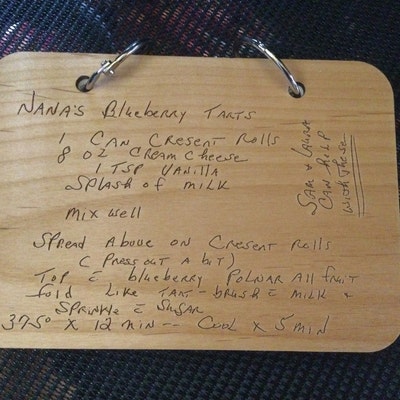 Nana's Blueberry Tarts
1 Can Cresent Rolls
8 oz Cream Cheese
1 Tsp Vanilla
Splash of milk
mix well
Spread Above on Cresent Rolls
(Press out a bit)
Top c̄ blueberry Polnar All fruit
fold like tart - brush c̄ milk &
Sprinkle c̄ Sugar
375° x 12 min -- Cool x 5 min
Sam & Laura
Can Help
with these